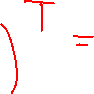 )ᵀ =